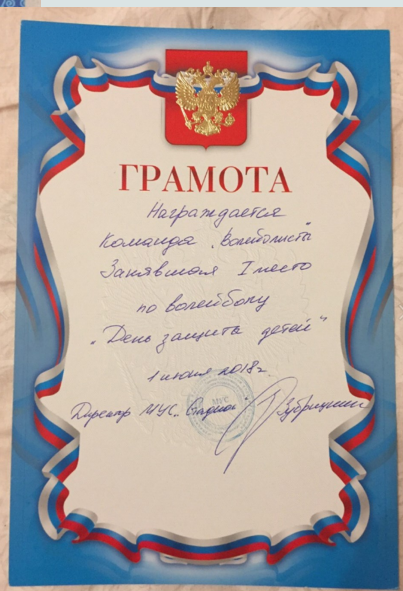 ГРАМОТА
Награждается
Команда „Волейболисты"
Занявшая I место
по волейболу
„День защита детей"
1 июня 2018г.
Директор МУС „Стадион"
МУС